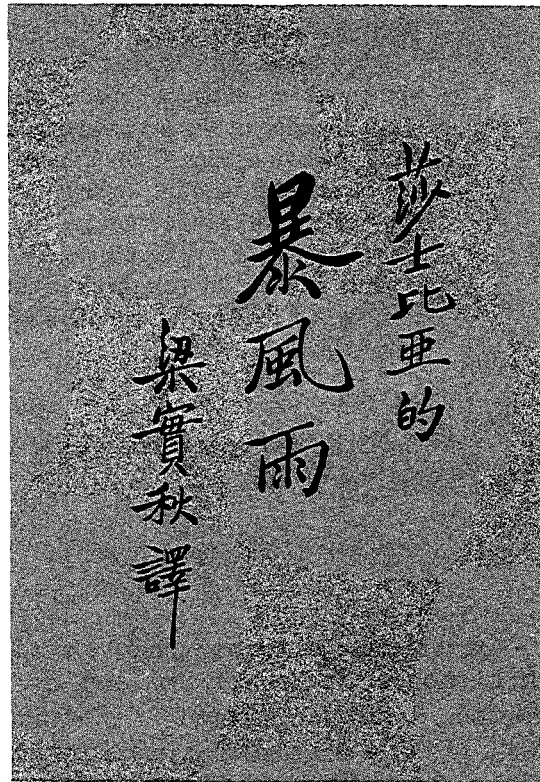 莎士比亚的
暴風雨
梁實秋譯